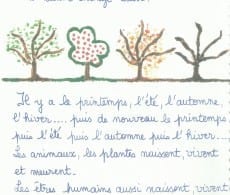 Il y a le printemps, l'été, l'automne,
l'hiver.... puis de nouveau le printemps
puis l'été puis l'automne puis l'hiver....
Les animaux, les plantes naissent, vivent
et meurent.
Les êtres humains aussi naissent, vivent